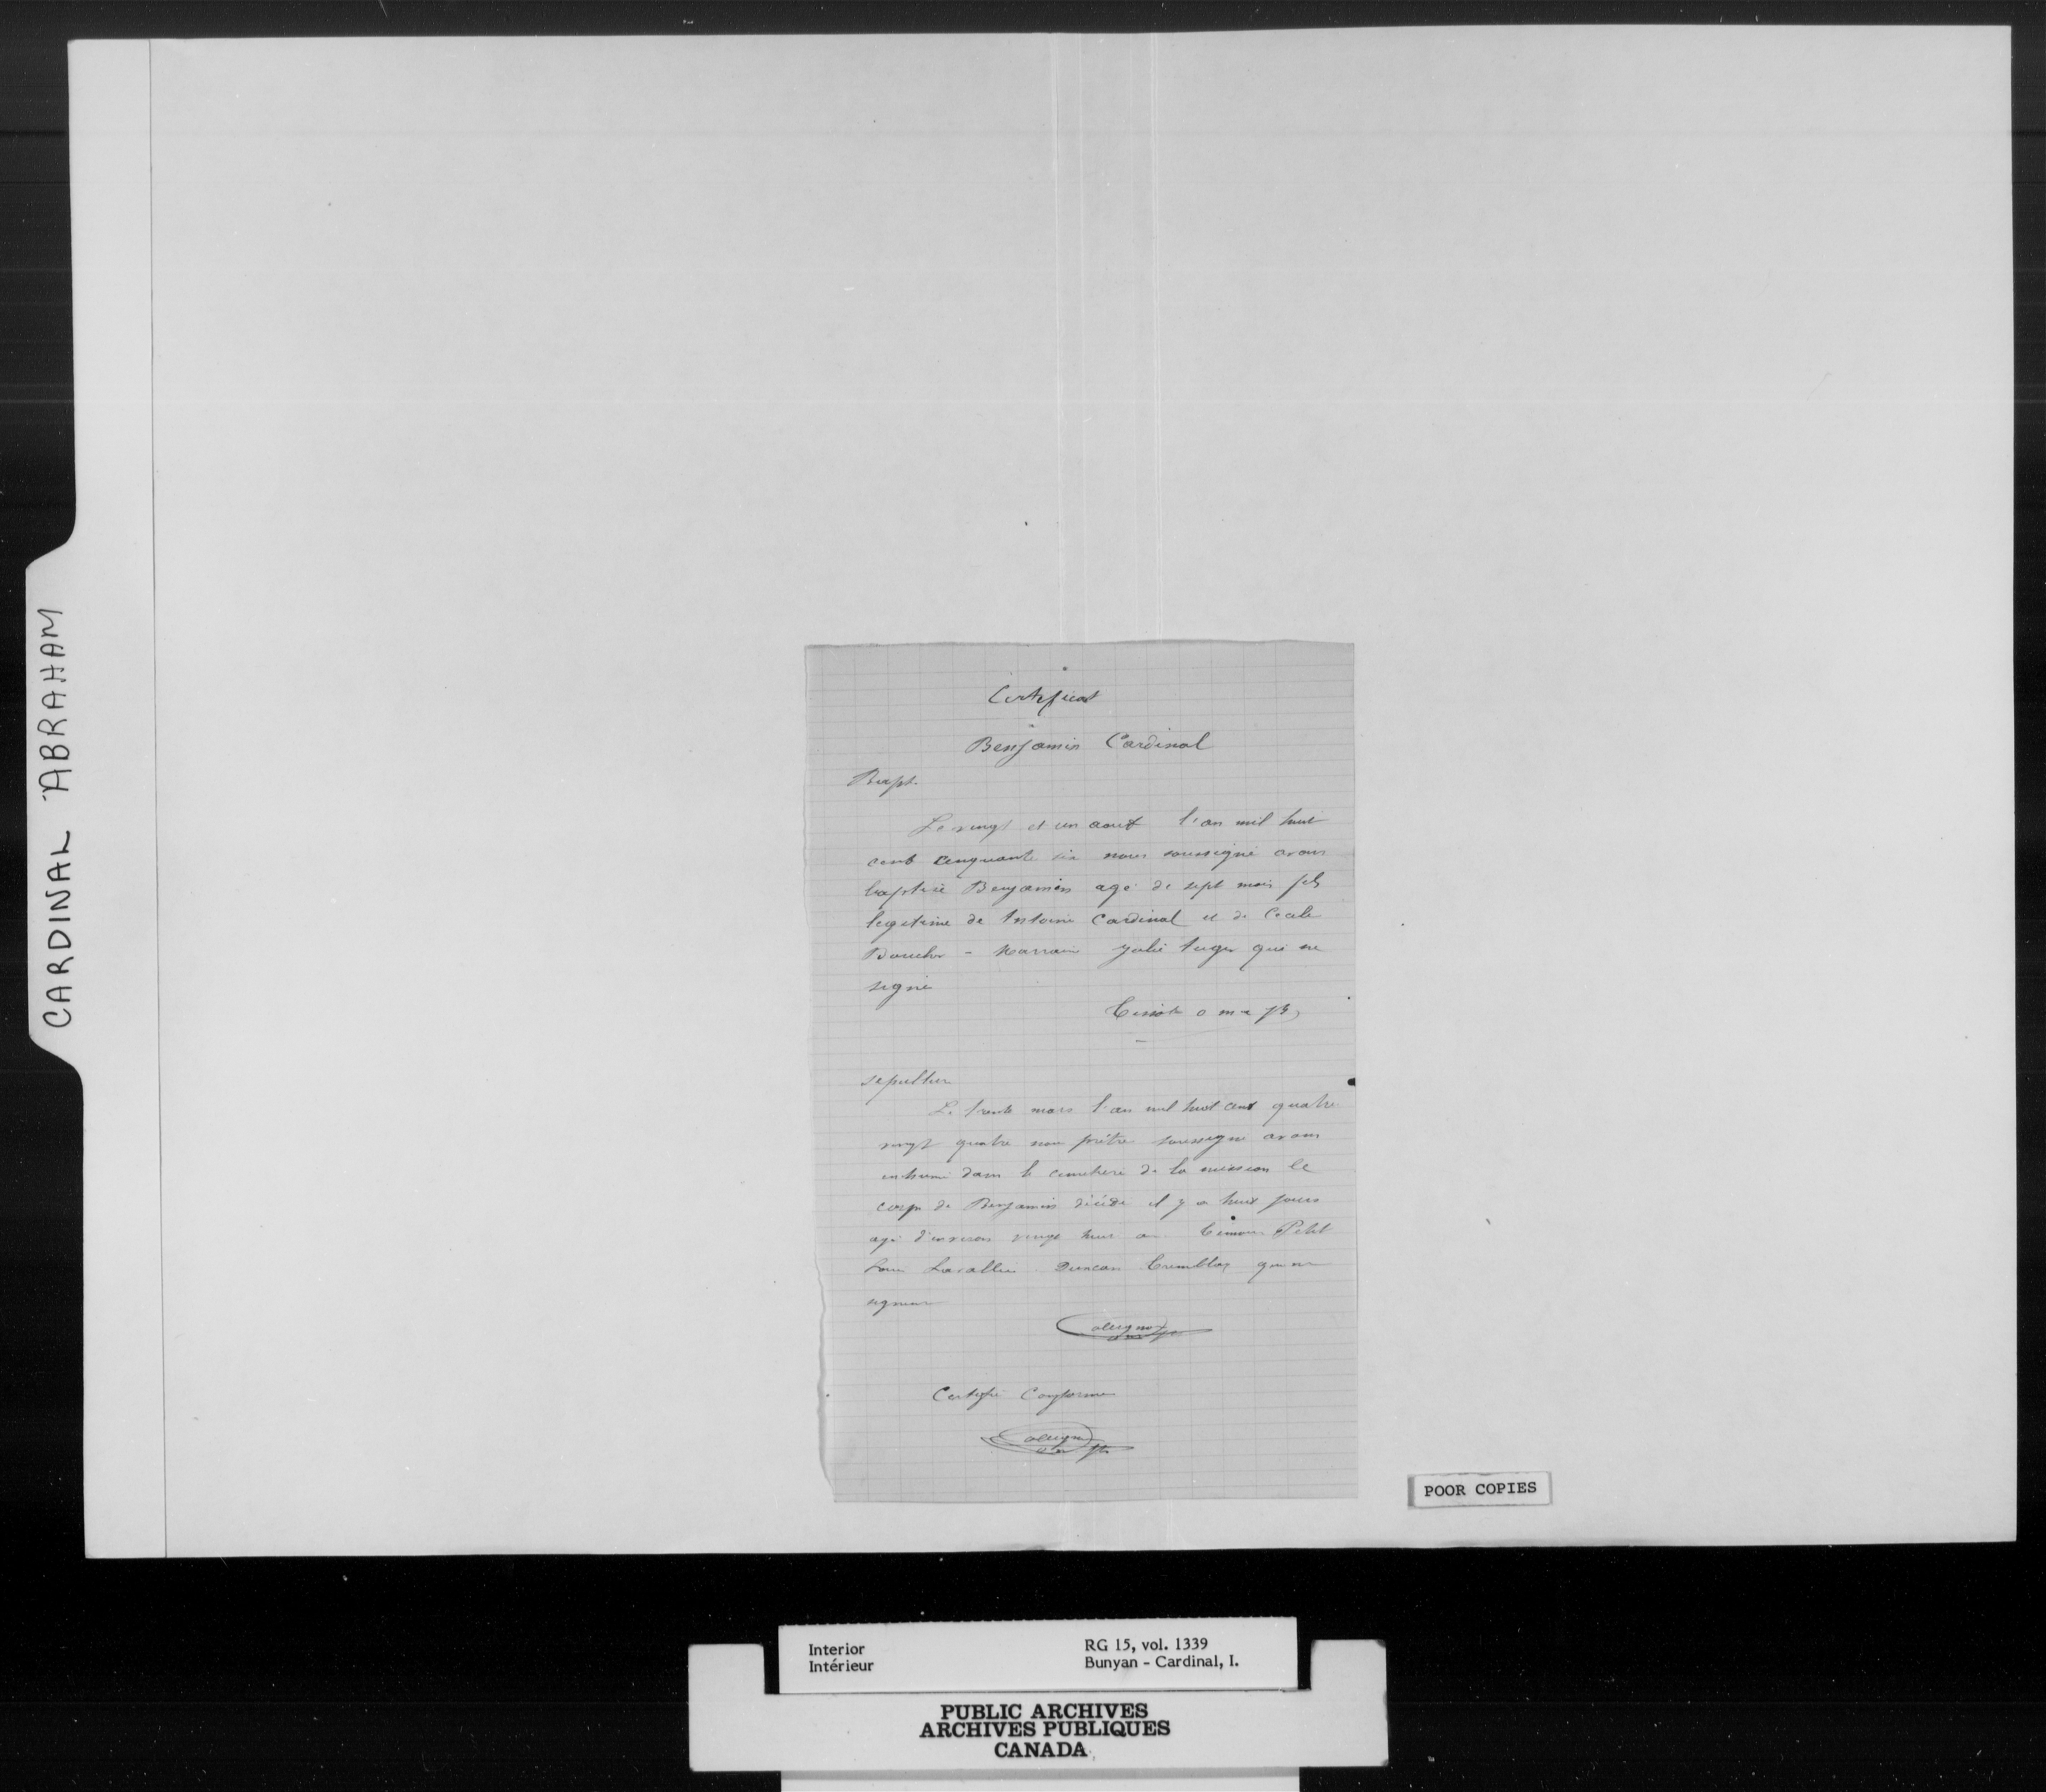 CARDINAL ABRAHAM
Certificat
Benjamin Cardinal
Bapt.
Le vingt et un aout l'an mil huit
cent cinquante six nous soussigné avons
baptisé Benjamin agé de sept mois fils
legitime de Antoine Cardinal et de Cecile
Boucher - Marraine Julie qui ne
signe
Tissot o m i
sepulture
Le trente mars l'an mil huit cent quatre
vingt quatre nous prêtre soussigné avons
inhumé dans le cimetiere de la mission le
corps de Benjamin décédé il y a huit jours
agé d'environ vingt huit ans Petit
Louis Lavallée Duncan Tremblay qui ne
signent
Certifié Conforme
POOR COPIES
Interior
Intérieur
RG 15, vol. 1339
Bunyan - Cardinal, I.
PUBLIC ARCHIVES
ARCHIVES PUBLIQUES
CANADA